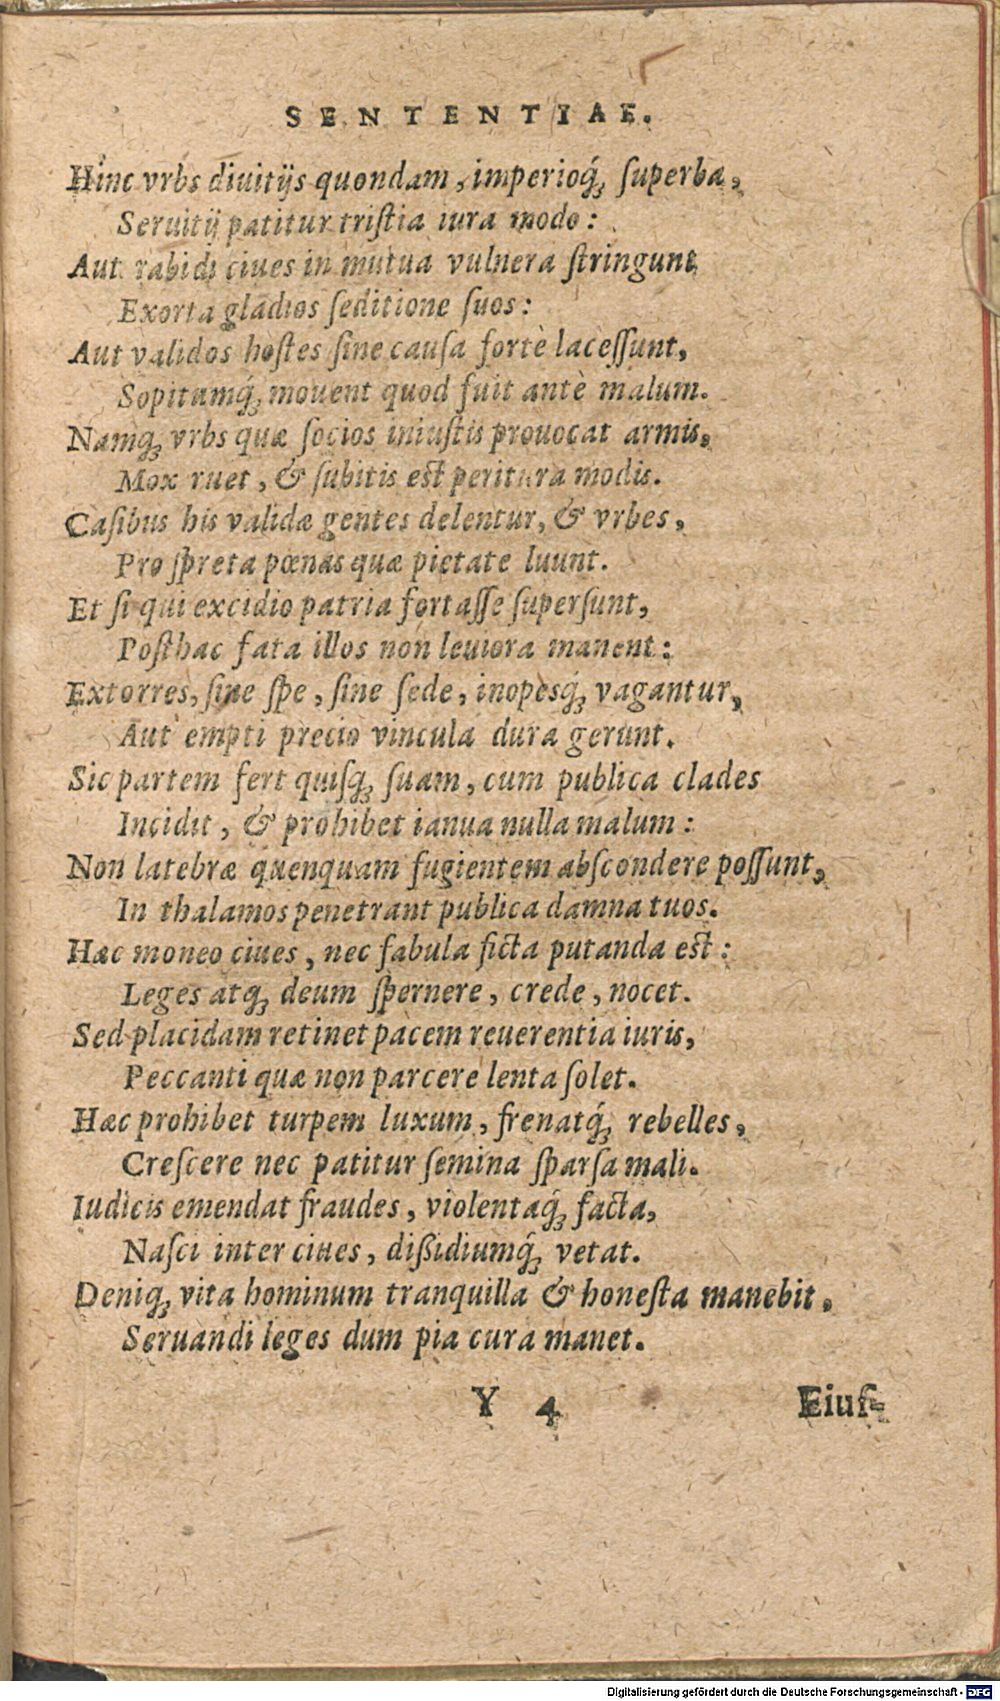 SENTENTIAE.
Hinc vrbs diuitijs quondam, imperioq́; ſuperba,
Seruitij patitur triſtia iura modo:
Aut rabidi ciues in mutua vulnera ſtringunt
Exorta gladios ſeditione ſuos:
Aut validos hoſtes ſine cauſa fortè laceſſunt,
Sopitamq́; mouent quod fuit antè malum.
Namq; vrbs quæ ſocios iniuſtis prouocat armis,
Mox ruet, & ſubitis eſt peritura modis.
Caſibus his validæ gentes delentur, & vrbes,
Pro ſpreta pœnas quæ pietate luunt.
Et ſi qui excidio patria fortaſſe ſuperſunt,
Poſthac fata illos non leuiora manent:
Extorres, ſine ſpe, ſine ſede, inopesq́; vagantur,
Aut empti precio vincula dura gerunt.
Sic partem fert quiſq; ſuam, cum publica clades
Incidit, & prohibet ianua nulla malum:
Non latebræ quenquam fugientem abſcondere poſſunt,
In thalamos penetrant publica damna tuos.
Hæc moneo ciues, nec fabula ficta putanda eſt:
Leges atq; deum ſpernere, crede, nocet.
Sed placidam retinet pacem reuerentia iuris,
Peccanti quæ non parcere lenta ſolet.
Hæc prohibet turpem luxum, frenatq́; rebelles,
Creſcere nec patitur ſemina ſparſa mali.
Iudicis emendat fraudes, violentaq́; facta,
Naſci inter ciues, diſsidiumq́; vetat.
Deniq; vita hominum tranquilla & honeſta manebit,
Seruandi leges dum pia cura manet.
Y 4 Eiuſ-
Digitalisierung gefördert durch die Deutsche Forschungsgemeinschaft - DFG